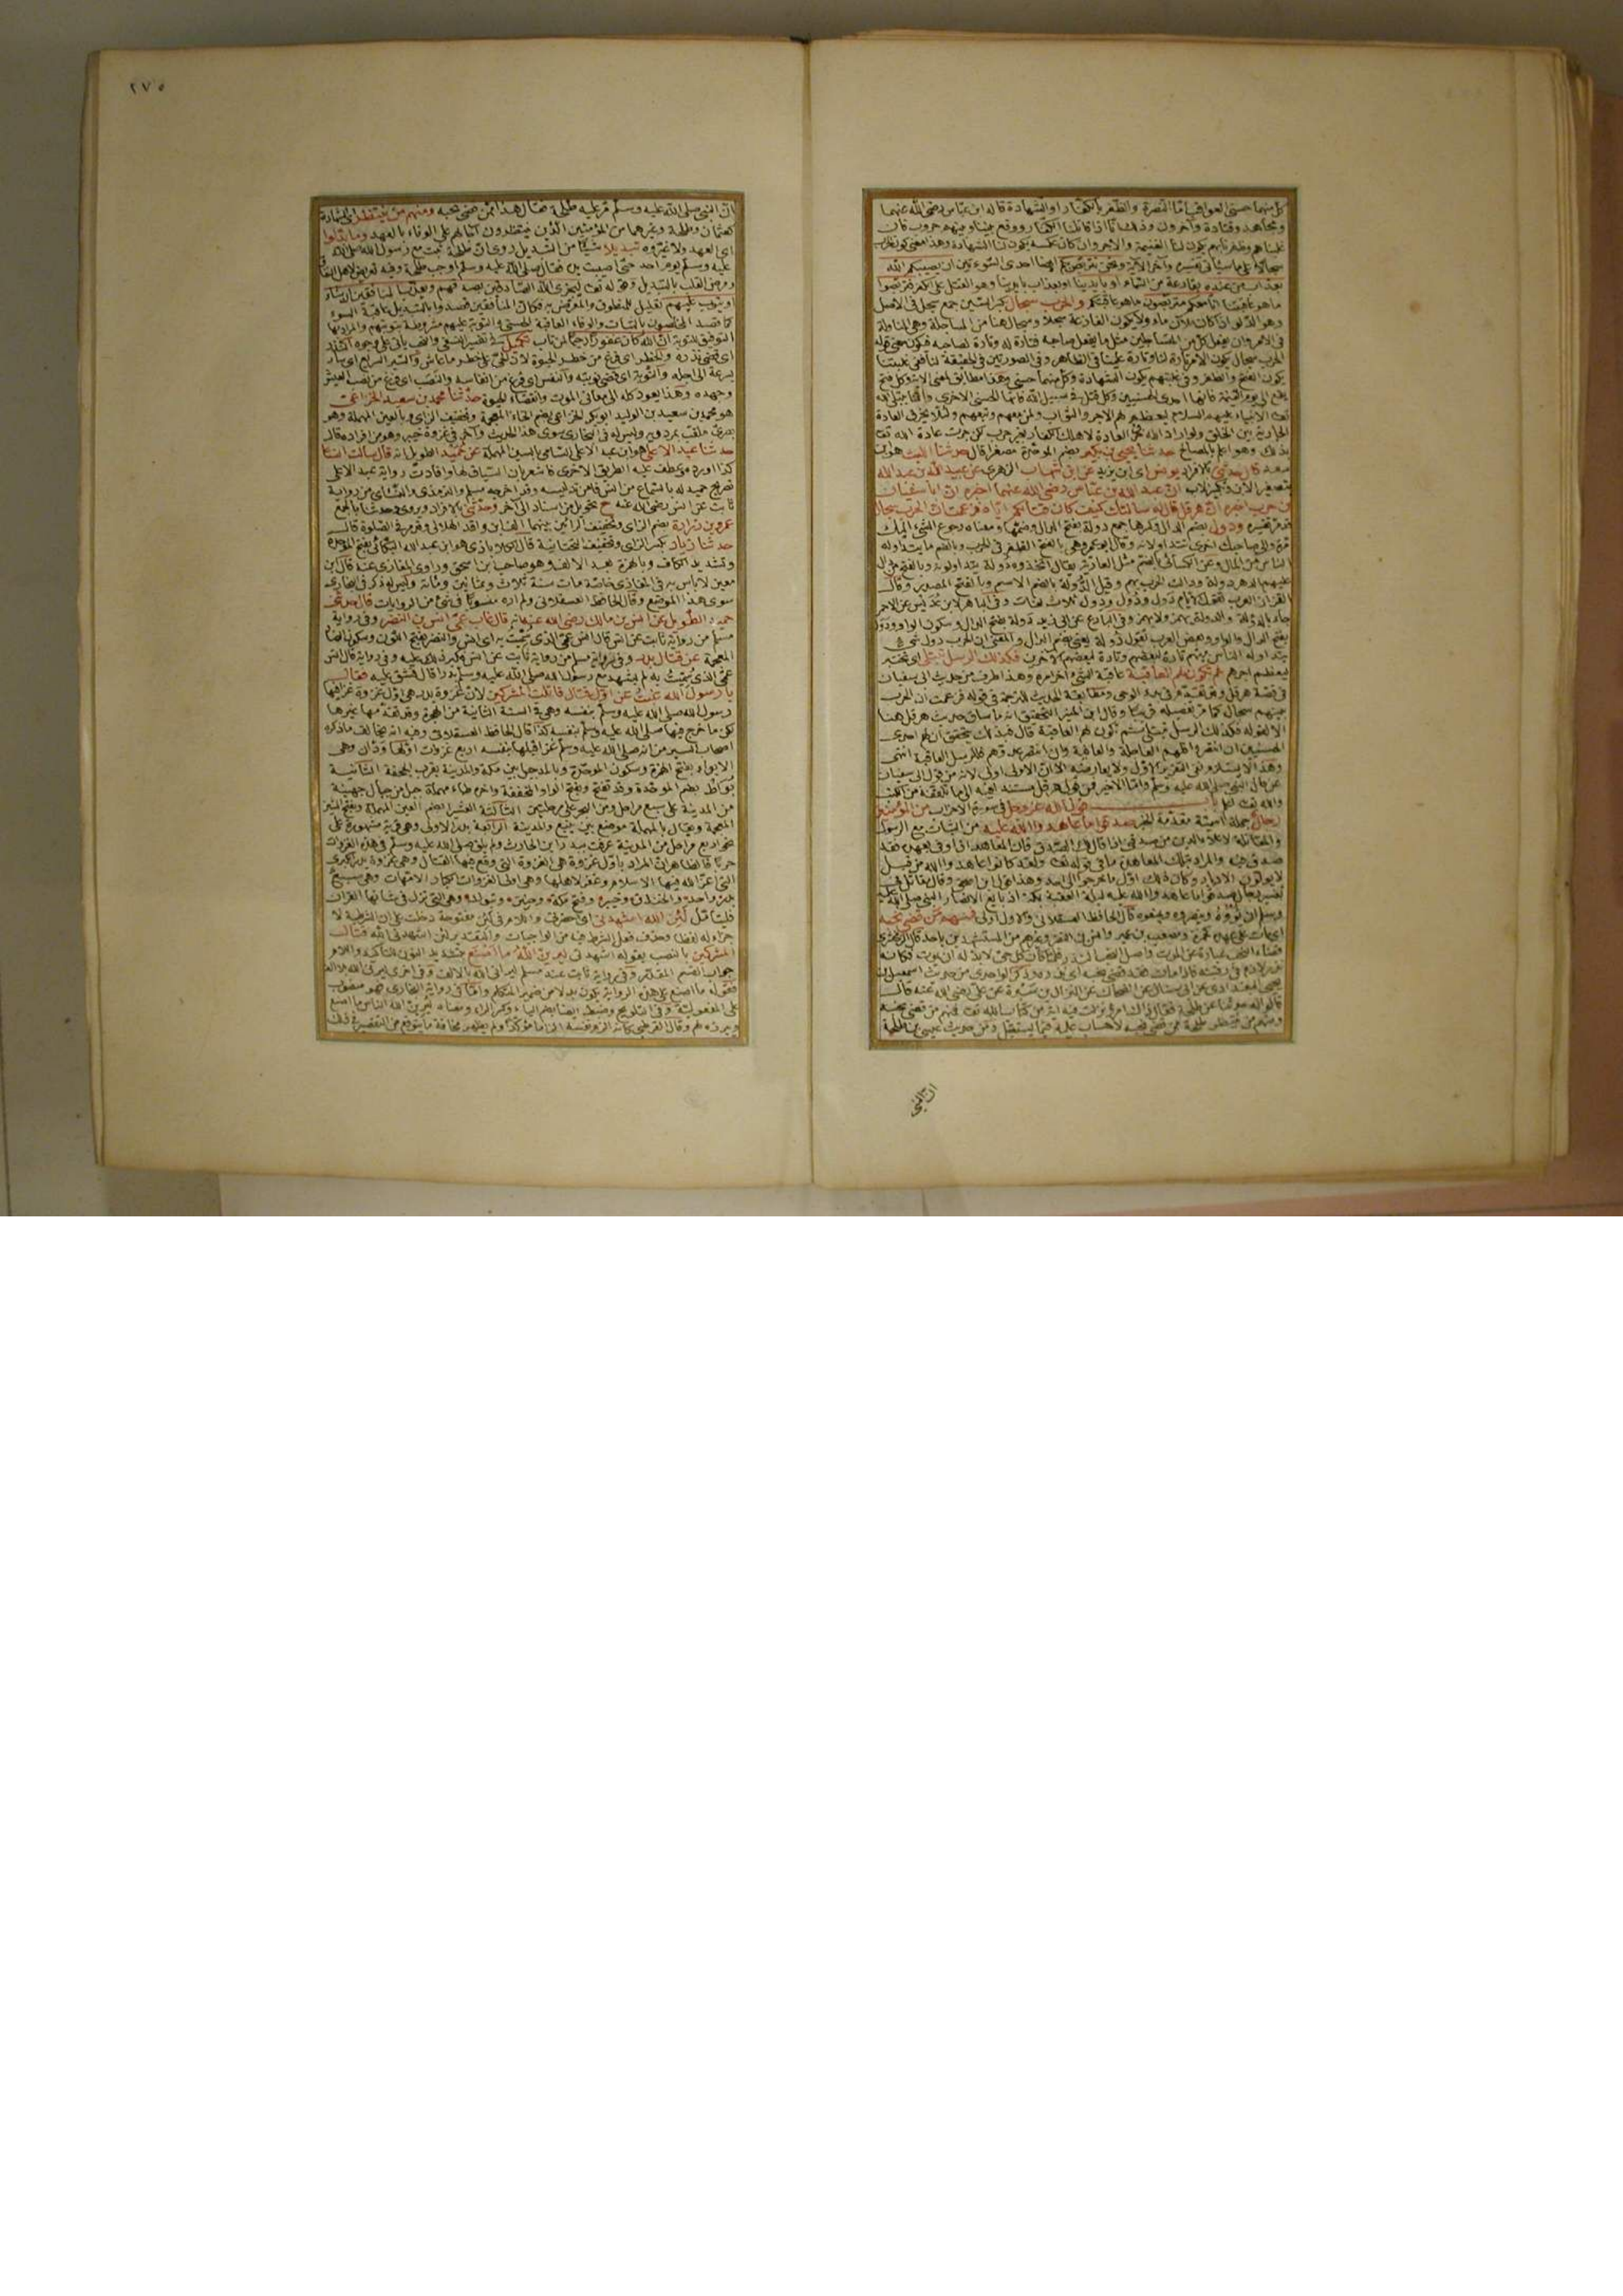 كل منهما حسنى العواقب اما النصرة والظفر بالكفار او الشهادة قاله ابن عباس رضي الله عنهما
ومجاهد وقتادة وآخرون وذلك انا اذا قاتلنا الكفار ووقع بيننا وبينهم حروب فان
غلبناهم وظفرنا بهم يكون لنا الغنيمة والاجر وان كان عكسه يكون لنا الشهادة وهذا معنى كون الحرب
سجالا على ما سيأتي تفسيره وآخر الآية ونحن نتربص بكم ايضا احدى السوءتين ان يصيبكم الله
بعذاب من عنده بقارعة من السماء او بأيدينا او بعذاب بأيدينا وهو القتل على الكفر فتربصوا
ما هو عاقبتنا انا معكم متربصون ما هو عاقبتكم والحرب سجال بكسر السين جمع سجل في الاصل
وهو الدلو اذا كان ملآن ماء ولا يكون الفارغة سجلا وسجال هنا من المساجلة وهي المناولة
في الامر وان يفعل كل من المتساجلين مثل ما يفعل صاحبه فتارة له وتارة لصاحبه فكون معنى قوله
الحرب سجال يكون الامر تارة لنا وتارة علينا في الظاهر وفي الصورتين في الحقيقة لنا ففي غلبتنا
يكون الغنم والظفر وفي غلبتهم يكون الشهادة وكل منهما حسنى وهذا مطابق لمعنى الآية وكل فتح
يقع الى يوم القيمة فانها احدى الحسنيين وكل قتل في سبيل الله فانها الحسنى الاخرى وانما يبتلي الله
تعالى الانبياء عليهم السلام ليعظم لهم الاجر والثواب ولمن معهم وتبعهم ولئلا يخرق العادة
الجارية بين الخلق ولو اراد الله خرق العادة لاهلك الكفار بغير حرب لكن جرت عادة الله تعالى
بذلك وهو اعلم بالمصالح حدثنا يحيى بن بكير بضم الموحدة مصغرا قال حدثنا الليث هو ابن
سعد قال حدثني بالافراد يونس اي ابن يزيد عن ابن شهاب الزهري عن عبيد الله بن عبد الله
بتصغير الابن وتكبير الاب ان عبد الله بن عباس رضي الله عنهما اخبره ان ابا سفيان
بن حرب اخبره ان هرقل قال له سألتك كيف كان قتالكم اياه فزعمت ان الحرب سجال
قد مر تفسيره ودول بضم الدال وكسرها جمع دولة بفتح الدال وضمها ومعناه رجوع الشيء اليك
مرة والى صاحبك اخرى تتداولانه وقال ابو عمرو هي بالفتح الظفر في الحرب وبالضم ما يتداوله
الناس من المال وعن الكسائي بالضم مثل العارية يقال اتخذوه دولة يتداولونه وبالفتح
عليهم الدهر دولة ودالت الحرب بهم وقيل الدولة بالضم الاسم وبالفتح المصدر وقال
بفتح الدال والواو وبعض العرب تقول دولة يعني بضم الدال والمعنى ان الحرب دول
يتداوله الناس بينهم تارة لبعضهم وتارة لبعضهم الآخرين فكذلك الرسل تبتلى اي تختبر
ليعظم اجرهم ثم تكون لهم العاقبة عاقبة الشيء آخر امره وهذا طرف من حديث ابي سفيان
في قصة هرقل وقد تقدم في بدء الوحي ومطابقة الحديث للترجمة في قوله فزعمت ان الحرب
بينهم سجال كما مر تفصيله قريبا وقال ابن المنير التحقيق انه ما ساق حديث هرقل هنا
الا لقوله فكذلك الرسل تبتلى ثم تكون لهم العاقبة قال فبذلك يتحقق ان لهم احدى
الحسنيين ان انتصروا فلهم العاجلة والعاقبة وان انتصر عدوهم فللرسل العاقبة انتهى
وهذا لا يستلزم نفي التقرير الاول ولا يعارضه الا ان الاولى اولى لانه من قول ابي سفيان
عن حال النبي صلى الله عليه وسلم واما الاخير فمن قول هرقل مستند فيه الى ما تلقفه من الكتب
والله تعالى اعلم باب قول الله عز وجل في سورة الاحزاب من المؤمنين
رجال جملة اسمية مقدمة الخبر صدقوا ما عاهدوا الله عليه من الثبات مع الرسول
والمقاتلة لاعلاء الدين من صدقني اذا قال لك الصدق فان المعاهد اذا وفى بعهده فقد
صدق فيه والمراد بتلك المعاهدة ما في قوله تعالى ولقد كانوا عاهدوا الله من قبل
لا يولون الادبار وكان ذلك اول ما خرجوا الى احد وهذا قول ابن اسحق وقال مقاتل في
تفسير رجال صدقوا ما عاهدوا الله عليه ليلة العقبة بمكة اذ بايع الانصار النبي صلى الله عليه
وسلم ان يؤووه وينصروه ويمنعوه قال الحافظ العسقلاني والاول اولى فمنهم من قضى نحبه
اي مات على عهده كحمزة ومصعب بن عمير وانس بن النضر وغيرهم من المستشهدين باحد قال الزمخشري
قضاء النحب عبارة عن الموت واصل النحب النذر فلما كان كل حي لابد له ان يموت فكانه
نذر لازم في رقبته فاذا مات فقد قضى نحبه اي نذره وذكر الواحدي من حديث اسمعيل بن
يحيى البغدادي عن ابي سنان عن الضحاك عن النزال بن سبرة عن علي رضي الله عنه قال
قالوا له حدثنا عن طلحة فقال ذاك امرؤ نزلت فيه آية من كتاب الله تعالى فمنهم من قضى نحبه
ومنهم من ينتظر طلحة ممن قضى نحبه لا حساب عليه فيما يستقبل ومن حديث عيسى بن طلحة
ان النبي
٢٧٥
ان النبي صلى الله عليه وسلم مر عليه طلحة فقال هذا ممن قضى نحبه ومنهم من ينتظر اي الشهادة
كعثمان وطلحة وغيرهما من المؤمنين الذين ينتظرون آجالهم على الوفاء بالعهد وما بدلوا
اي العهد ولا غيروه تبديلا شيئا من التبديل روي ان طلحة ثبت مع رسول الله صلى الله
عليه وسلم يوم احد حتى اصيبت يده فقال صلى الله عليه وسلم اوجب طلحة وفيه تعريض لاهل النفاق
ومرض القلب بالتبديل وقوله تعالى ليجزي الله الصادقين بصدقهم ويعذب المنافقين ان شاء
او يتوب عليهم تعليل للمنطوق والمعرض به فكان المنافقين قصدوا بالتبديل عاقبة السوء
كما قصد المخلصون بالثبات والوفاء العاقبة الحسنى والتوبة عليهم مشروطة بتوبتهم والمراد بها
التوفيق للتوبة ان الله كان غفورا رحيما لمن تاب تكميل في تفسير النسفي والنحب يأتي على وجوه النذر
اي قضى نذره والخطر اي فرغ من خطر الحيوة لان الحي على خطر ما عاش والسير السريع اي سار
بسرعة الى اجله والنوبة اي قضى نوبته والنفس اي فرغ من انفاسه والنصب اي فرغ من نصب العيش
وجهده وهذا يعود كله الى معاني الموت وانقضاء الحيوة حدثنا محمد بن سعيد الخزاعي
هو محمد بن سعيد بن الوليد ابو بكر الخزاعي بضم الخاء المعجمة وتخفيف الزاي وبالعين المهملة وهو
بصري ملقب بمردويه وليس له في البخاري سوى هذا الحديث وآخر في غزوة خيبر وهو من افراده قال
حدثنا عبد الاعلى هو ابن عبد الاعلى السامي بالسين المهملة عن حميد الطويل انه قال سألت انسا
كذا اورده وعطف عليه الطريق الاخرى فاشعر بان السياق لها وافادت رواية عبد الاعلى
تصريح حميد له بالسماع من انس فامن تدليسه وقد اخرجه مسلم والترمذي والنسائي من رواية
ثابت عن انس رضي الله عنه ح تحويل من اسناد الى آخر وحدثني بالافراد ويروى وحدثنا بالجمع
عمرو بن زرارة بضم الزاي وتخفيف الرائين بينهما الف ابن واقد الهلالي وقد مر في الصلوة قال
حدثنا زياد بكسر الزاي وتخفيف التحتانية قال الكلاباذي هو ابن عبد الله البكائي بفتح الموحدة
وتشديد الكاف وبالهمزة بعد الالف وهو صاحب ابن اسحق وراوي المغازي عنه قال ابن
معين لا بأس به في المغازي خاصة مات سنة ثلاث وثمانين ومائة وليس له ذكر في البخاري
سوى هذا الموضع وقال الحافظ العسقلاني ولم اره منسوبا في شيء من الروايات قال حدثني
حميد الطويل عن انس بن مالك رضي الله عنه انه قال غاب عمي انس بن النضر وفي رواية
مسلم من رواية ثابت عن انس قال انس عمي الذي سميت به اي انس والنضر بفتح النون وسكون الضاد
المعجمة عن قتال بدر وفي رواية مسلم من رواية ثابت عن انس فكبر ذلك عليه وفي رواية قال انس
عمي الذي سميت به لم يشهد مع رسول الله صلى الله عليه وسلم بدرا قال فشق عليه فقال
يا رسول الله غبت عن اول قتال قاتلت المشركين لان غزوة بدر هي اول غزوة غزا فيها
رسول الله صلى الله عليه وسلم بنفسه وهي في السنة الثانية من الهجرة وقد تقدمها غيرها
لكن ما خرج فيها صلى الله عليه وسلم بنفسه كذا قال الحافظ العسقلاني وفيه انه يخالف ما ذكره
اصحاب السير من انه صلى الله عليه وسلم غزا قبلها بنفسه اربع غزوات اولها ودان وهي
الابواء بفتح الهمزة وسكون الموحدة وبالمد جبل بين مكة والمدينة بقرب الجحفة الثانية
بواط بضم الموحدة وقد تفتح وبفتح الواو المخففة وآخره طاء مهملة جبل من جبال جهينة
من المدينة على سبع مراحل ومن البحر على مرحلتين الثالثة العشيرا بضم العين المهملة وبفتح الشين
المعجمة ويقال بالمهملة موضع بين ينبع والمدينة الرابعة بدر الاولى وهي قرية مشهورة على
نحو اربع مراحل من المدينة عرفت ببدر ابن الحارث ولم يلق صلى الله عليه وسلم في هذه الغزوات
حربا فالظاهر ان المراد باول غزوة هي الغزوة التي وقع فيها القتال وهي غزوة بدر الكبرى
التي اعز الله فيها الاسلام وغفر لاهلها وهي اولى الغزوات الكبار الامهات وهي سبع
بدر واحد والخندق وخيبر وفتح مكة وحنين وتبوك وهي التي نزل في شأنها القرآن
فليتأمل لئن الله اشهدني اي احضرني واللام في لئن مفتوحة دخلت على ان الشرطية لا
جزاء له لفظا وحذف فعل الشرط فيه من الواجبات والتقدير لئن اشهدني الله قتال
المشركين بالنصب بقوله اشهدني ليرين الله ما اصنع بتشديد النون للتأكيد واللام
جواب القسم المقدر وفي رواية ثابت عند مسلم ليراني الله بالالف وفي اخرى ليرني الله بلا الف
فقوله ما اصنع على هذه الرواية يكون بدلا من ضمير المتكلم واما في رواية البخاري فهو منصوب
على المفعولية وفي التلويح وضبط ايضا بضم الياء وكسر الراء ومعناه ليرين الله الناس ما اصنع
ويبرزه لهم وقال القرطبي كانه الزم نفسه الزاما مؤكدا ولم يظهر مخافة ما يتوقع من التقصير في ذلك